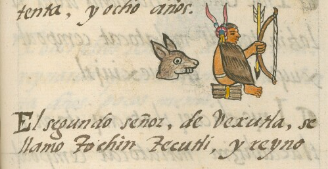 tenta, y ocho años.
El segundo señor, de Vexutla, se
llamo Tochin Tecutli, y reyno